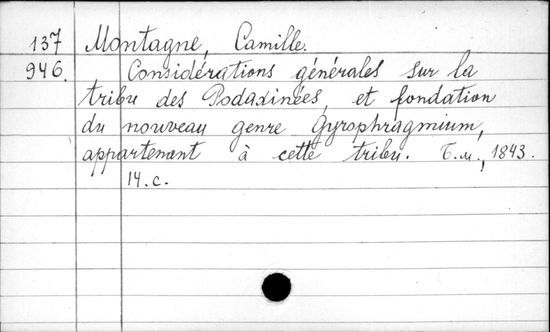 137 Montagne, Camille.
946. Considérations générales sur la
tribu des Podaxinées, et fondation
du nouveau genre Gyrophragmium,
appartenant à cette tribu. Б.м., 1843.
14.c.